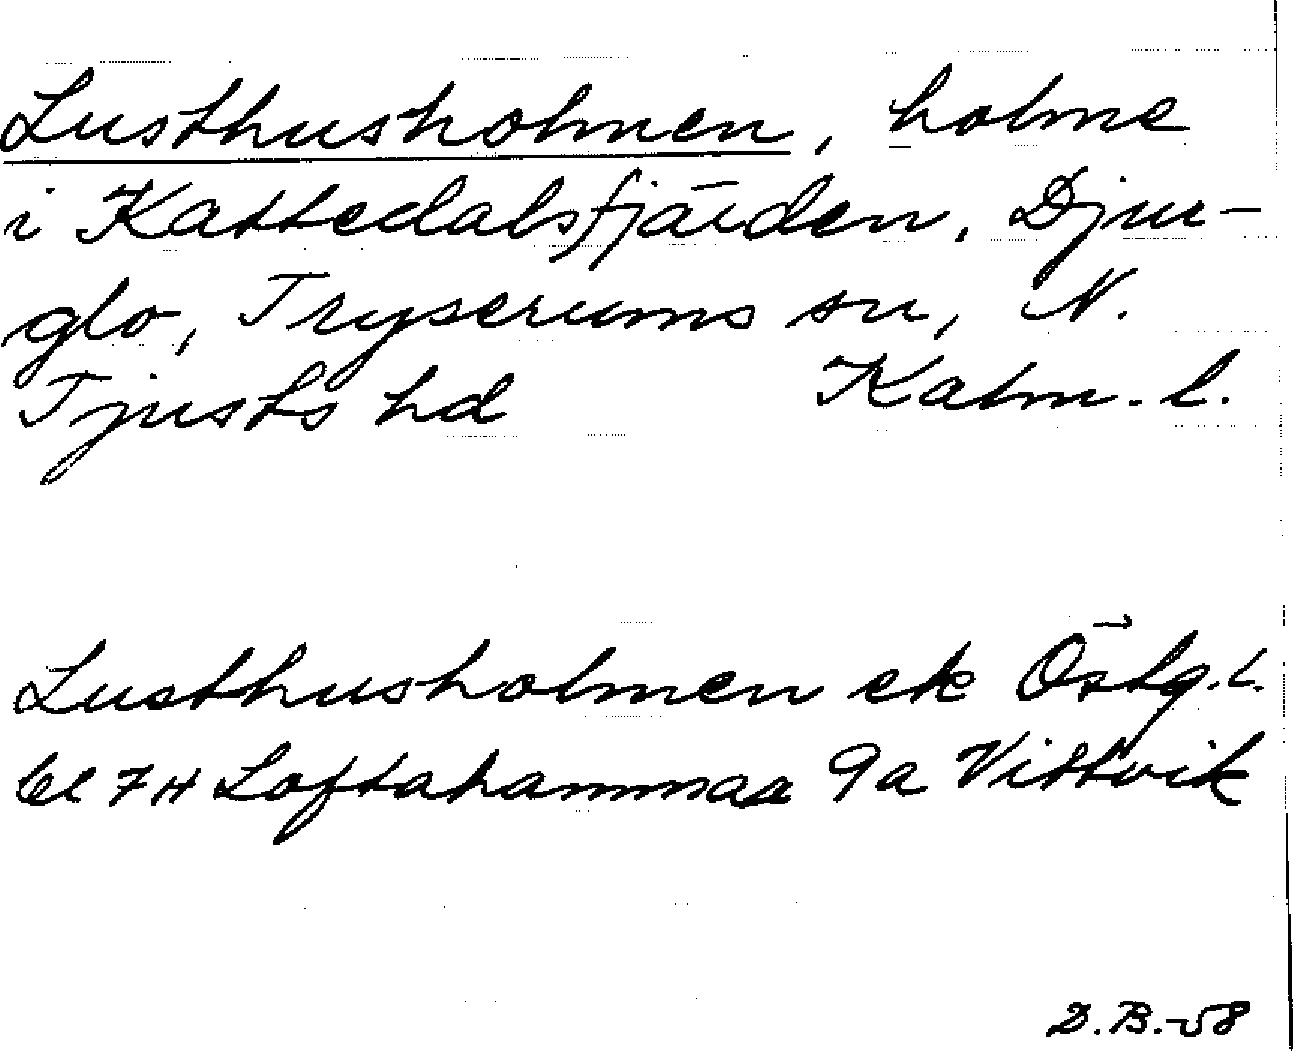 Lusthusholmen, holme
i Kattedalsfjärden, Djur-
glo, Tryserums sn, N.
Tjusts hd Kalm. l.
Lusthusholmen ek Östg. l.
bl 7H Loftahammar 9a Vittvik
D.B.-58